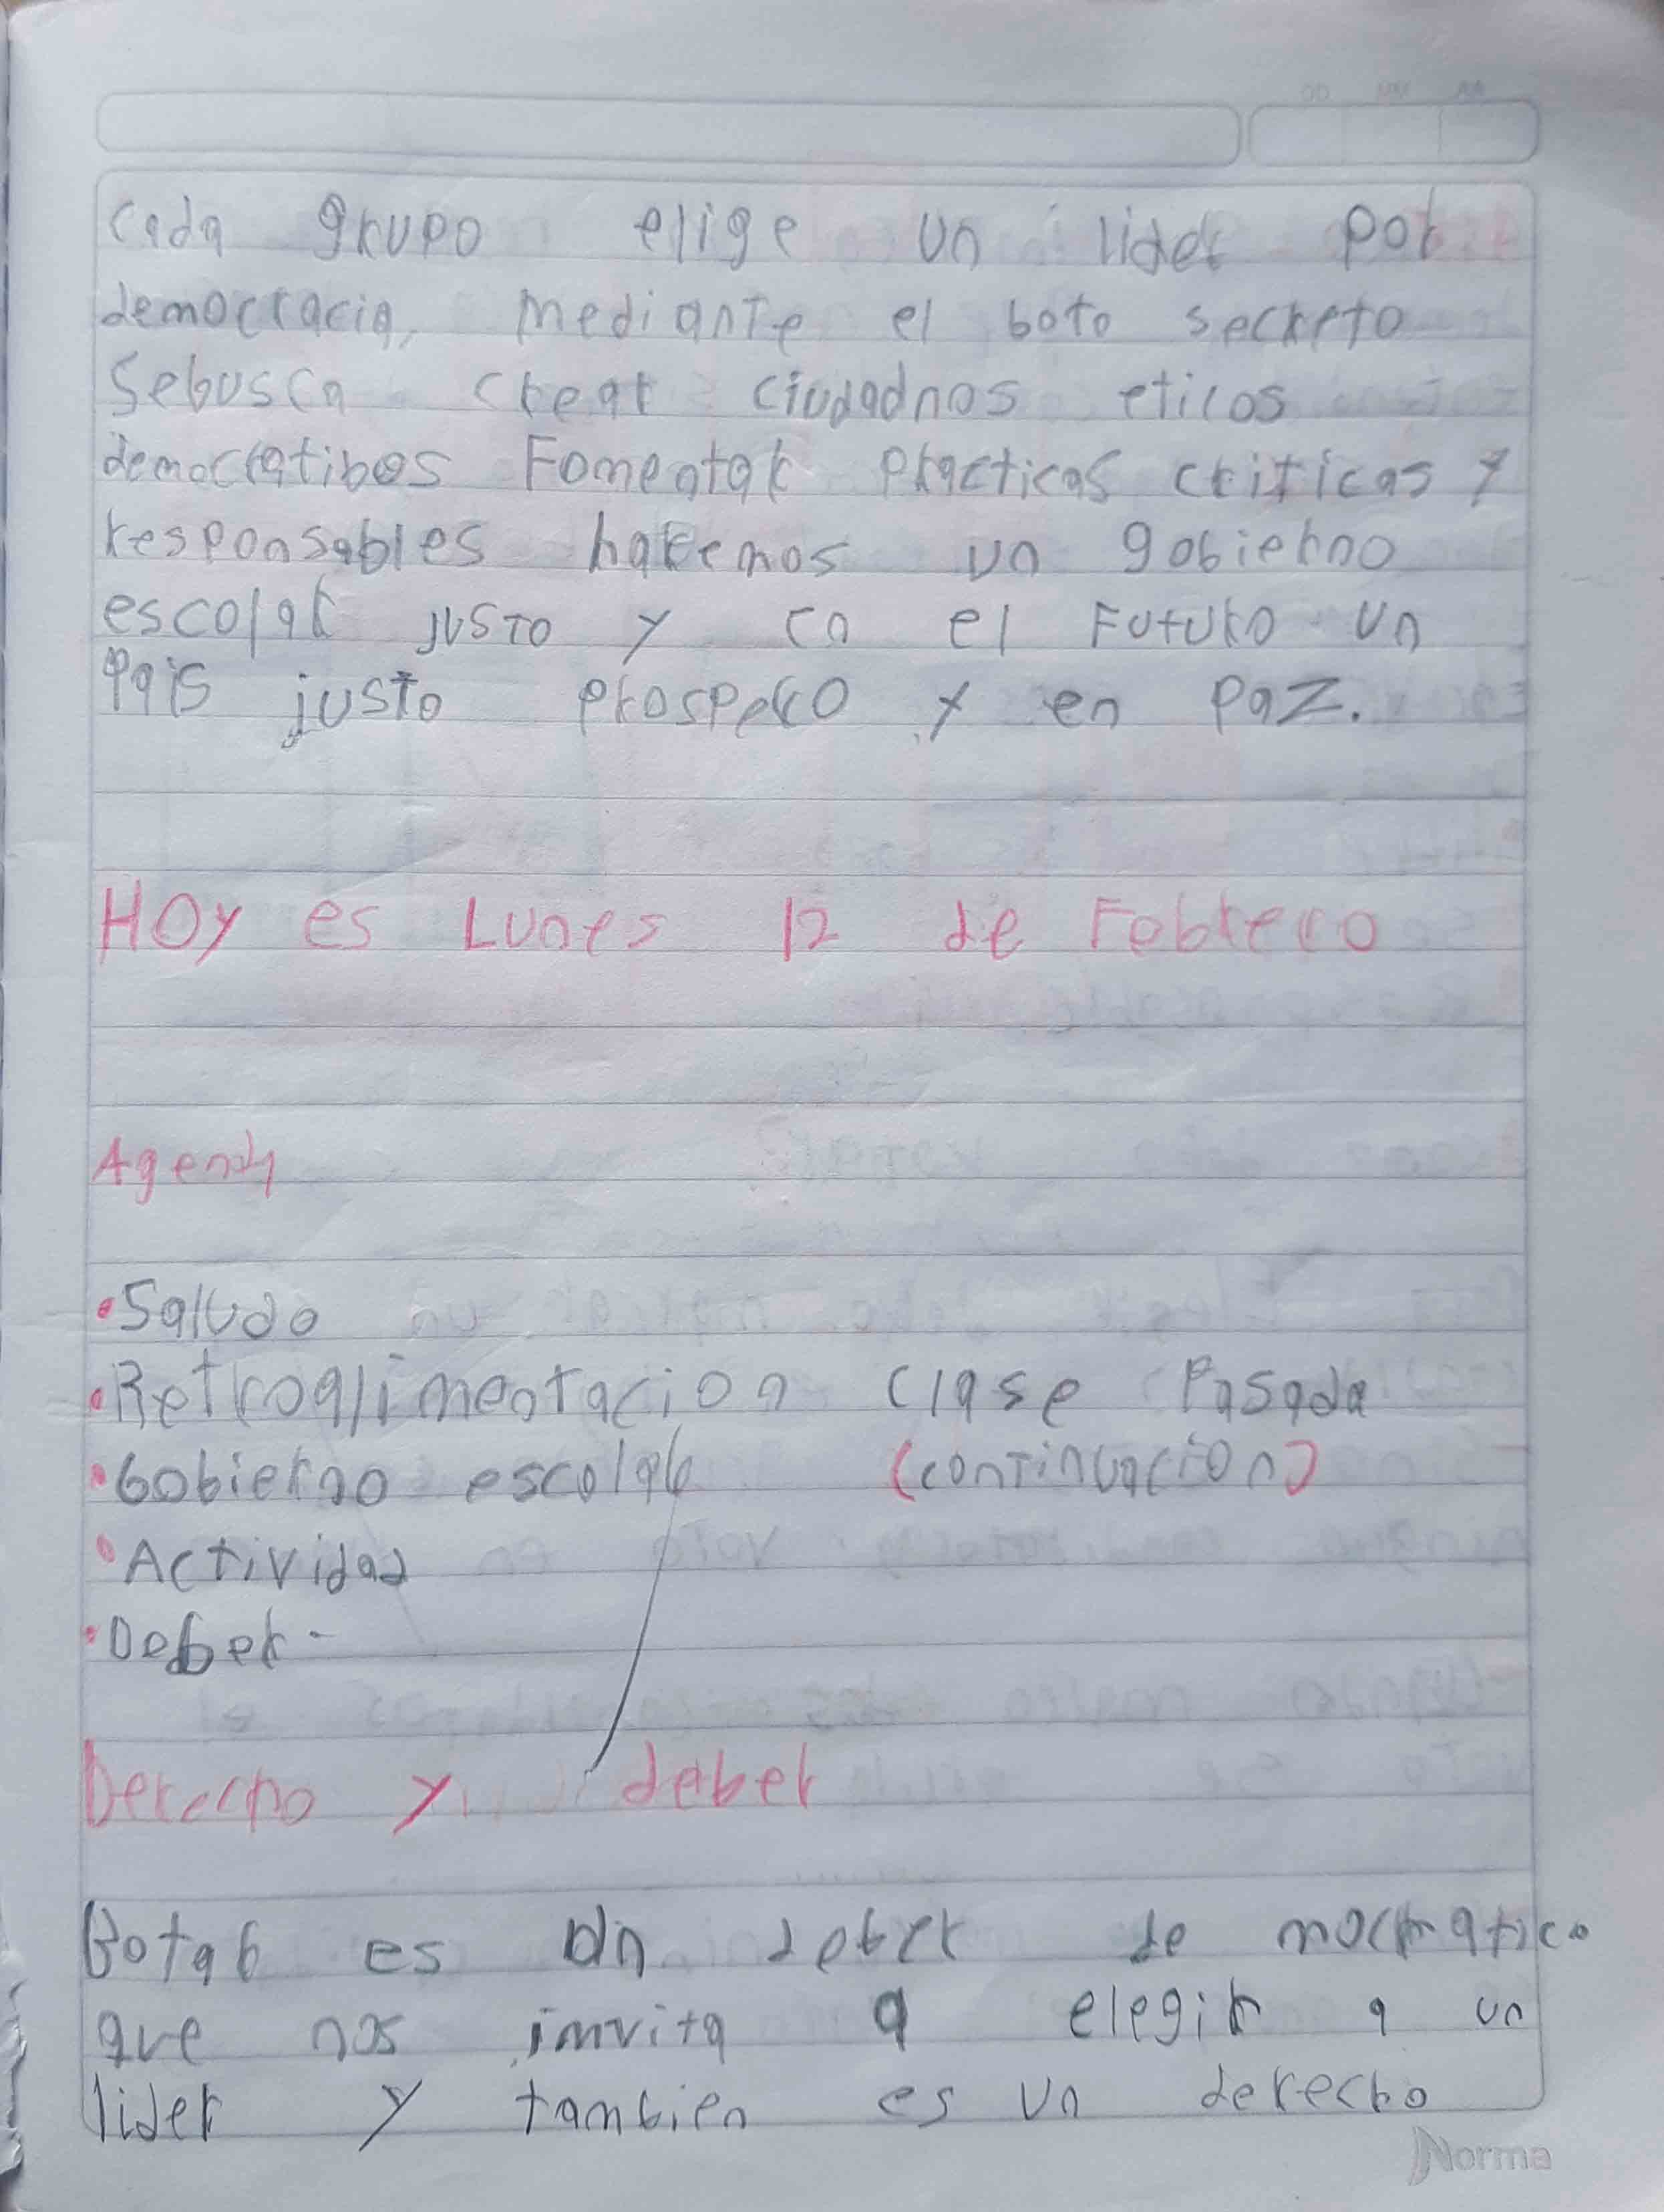 DD MM AA
Cada grupo elige un lider por
democracia, mediante el boto secreto
Sebusca crear ciudadnos eticos
democratibos Fomentar practicas criticas y
responsables haremos un gobierno
escolar justo y en el Futuro un
Pais justo prospero y en paz.
HOy es Lunes 12 de Febrero
Agenda
•Saludo
•Retroalimentacion Clase Pasada
•Gobierno escolar (continuacion)
•Actividad
•Deber-
Derecho y deber
Botar es un deber de mocratico
que nos imvita a elegir a un
lider y tambien es un derecho
Norma